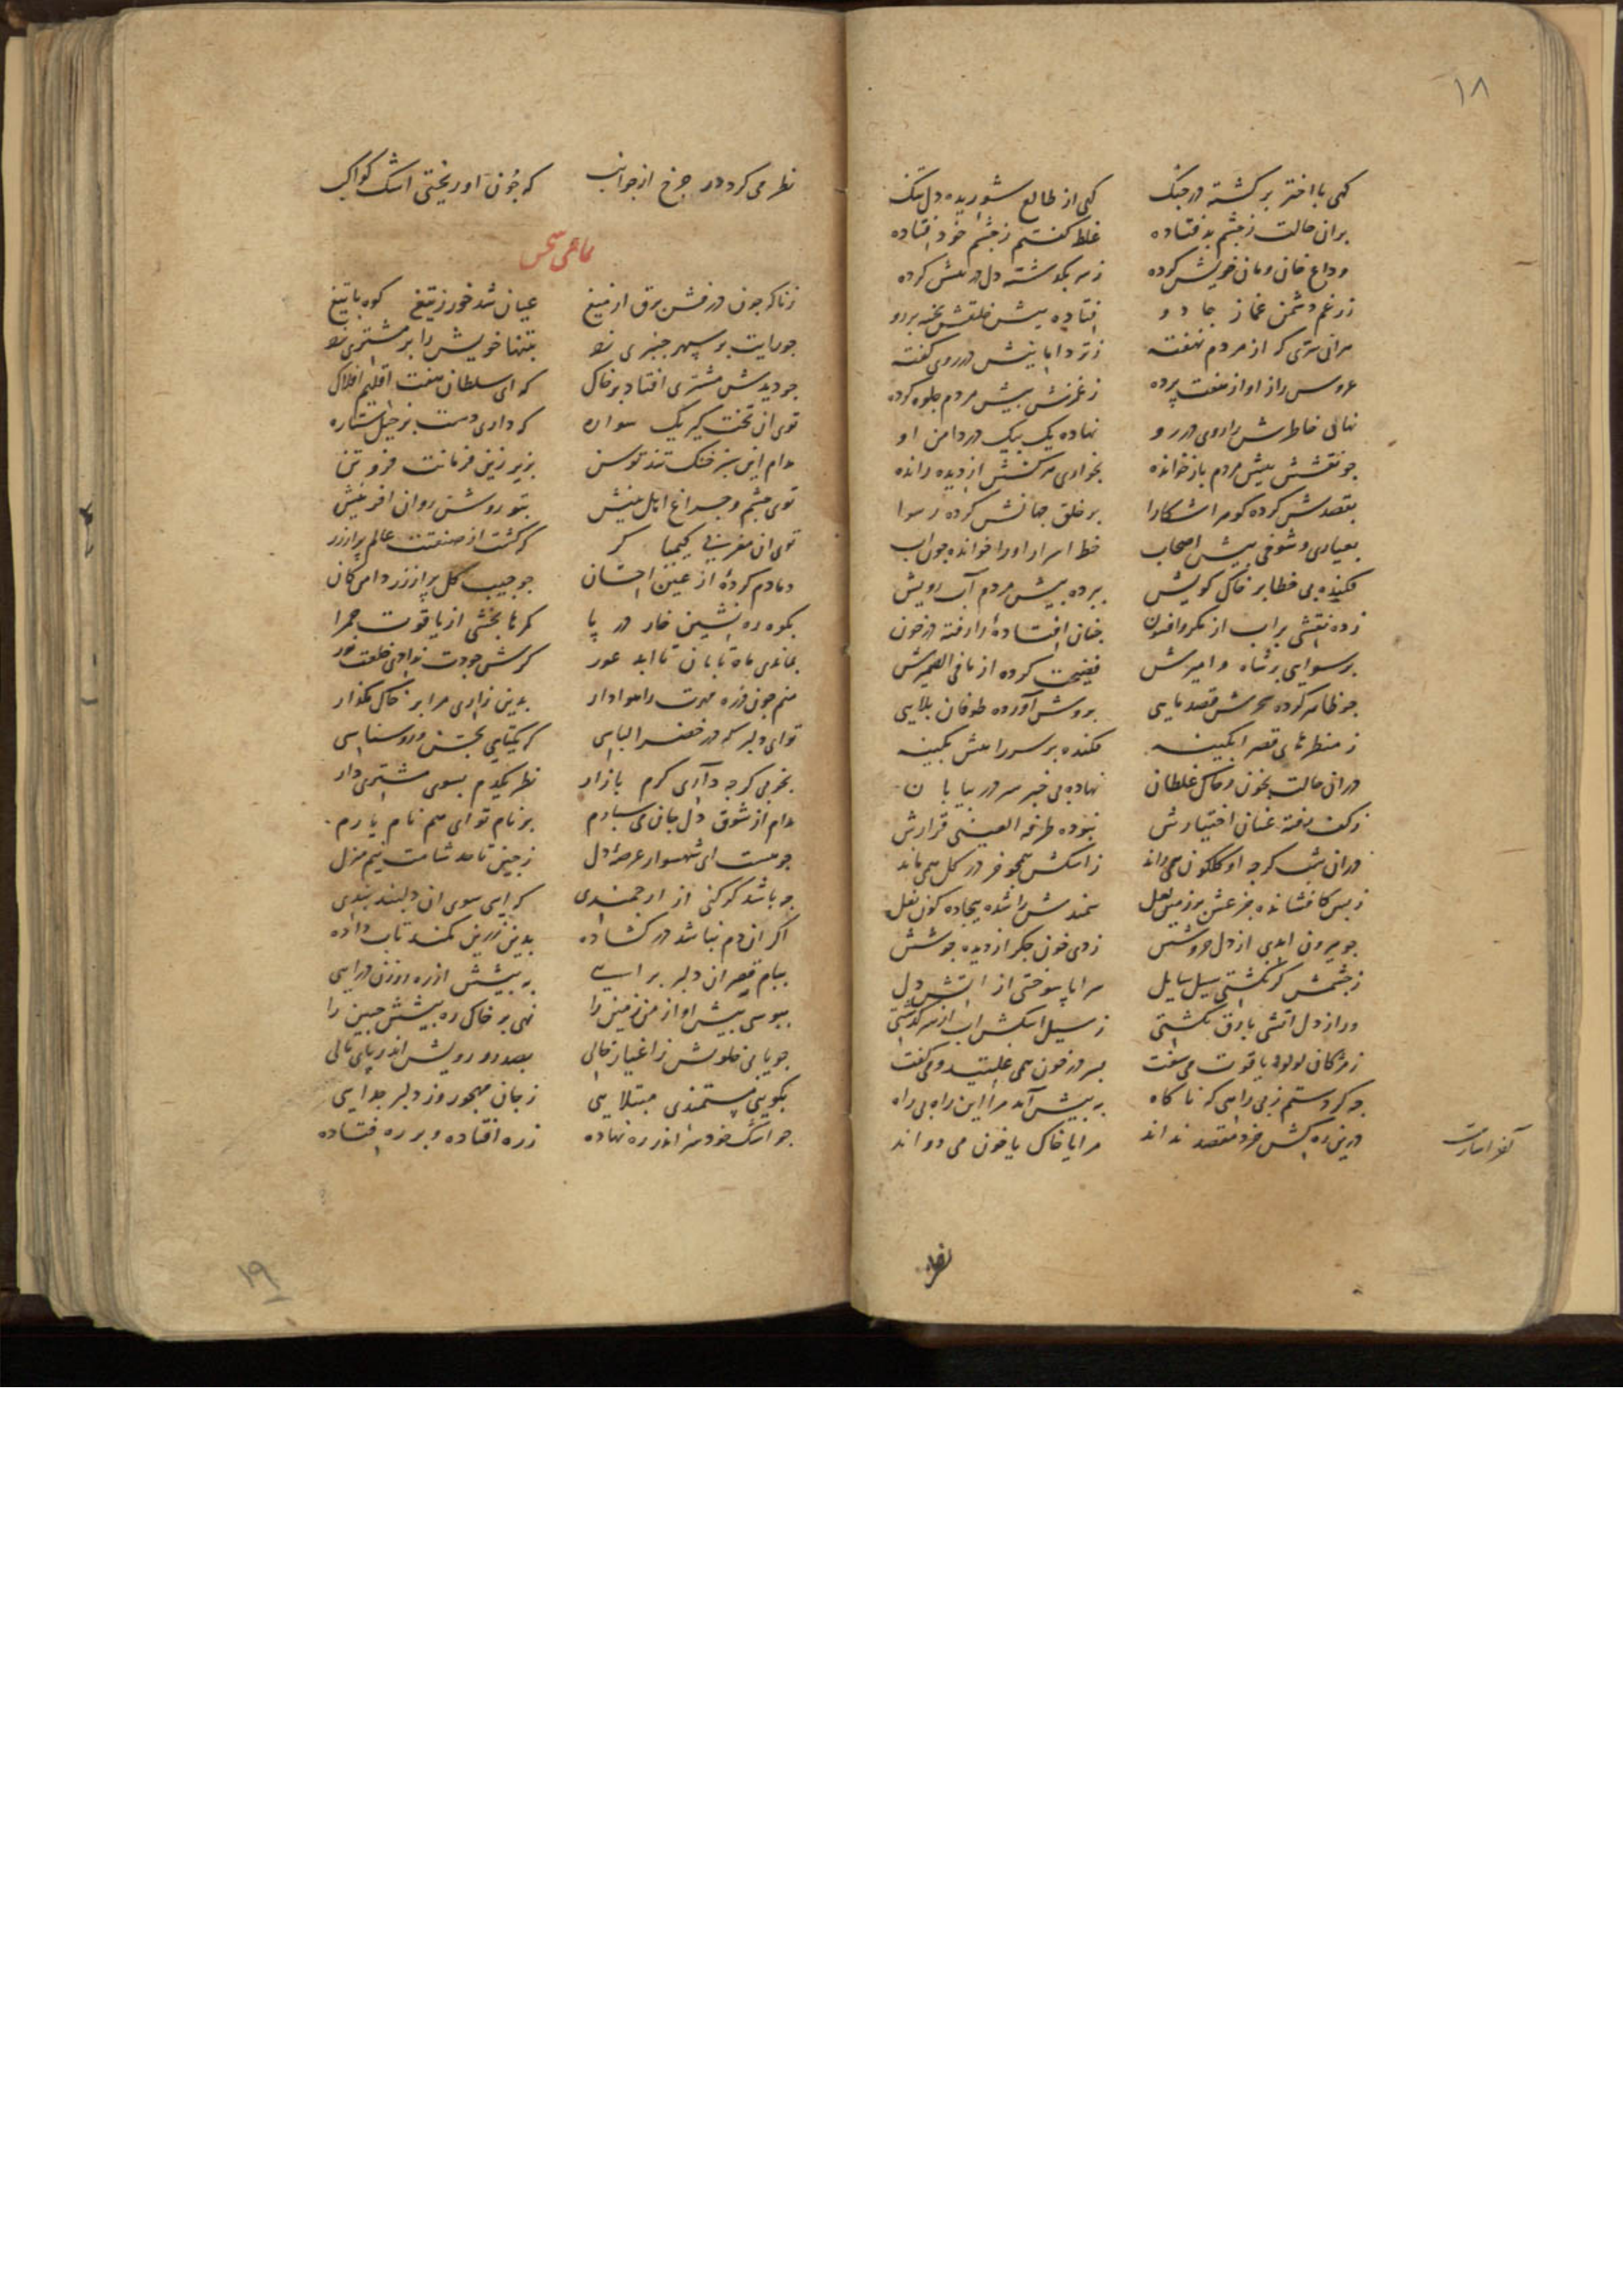 ۱۸
کهی با اختر برکشته در جنک کهی از طالع شوریده دل تنک
بران حالت ز چشم بد فتاده غلط کفتم ز چشم خود فتاده
وداع خان و مان خویش کرده ز سر بکذشته دل در پیش کرده
ز زعم دشمن غماز جادو فتاده پیش خلقش بخیه بر رو
مر ان سری که از مردم نهفته ز تر دامانیش در روی کفته
عروس راز او از هفت پرده ز غمزش پیش مردم جلوه کرده
نهانی خاطرش را روی در رو نهاده یک بیک در دامن او
جو نقشش پیش مردم باز خوانده بخواری سرکشش از دیده رانده
بقصدش کرده کوهر اشکارا بر خلق جهانش کرده رسوا
بعیاری و شوخی پیش اصحاب خط اسرار او را خوانده جون اب
فکنده بی خطا بر خاک کویش ببرده پیش مردم آب رویش
زده نقشی براب از مکر و افسون جنان افتاده را رفته در خون
برسوایی بر شاه و امیرش فضیحت کرده از ما فی الضمیرش
جو ظاهر کرده سحرش قصد مایی بروش آورده طوفان بلایی
ز منظرهای قصر ابکینه فکنده بر سر راهش بکینه
دران حالت بخون و خاک غلطان نهاده بی خبر سر در بیابان
ز کف رفته عنان اختیارش نبوده طرفه العینی قرارش
دران شب کرجه او کلکون همی راند ز اشکش همجو خر در کل همی ماند
ز بس کافشانده جزعش بر زمین لعل سمندش را شده بیجاده کون نعل
جو بیرون امدی از دل خروشش زدی خون جکر از دیده جوشش
ز جشمش کر نکشتی سیل سایل سراپا سوختی از اتش دل
ور از دل اتشی بارق نکشتی ز سیل اشکش اب از سر کذشتی
ز مژکان لولو یاقوت می سفت بسر در خون همی غلتید و می کفت
جه کردستم ز بی راهی که ناکاه به پیش آمد مرا این راه بی راه
درین ره کش خرد مقصد نداند مرا یا خاک یا خون می دواند
نظر
نظر می کرد در جرخ از جوانب که جون او ریختی اشک کواکب
زناکه جون درفش برق از میغ عیان شد خور ز تیغ کوه با تیغ
جو رایت بر سپهر جنبری زد بتنها خویش را بر مشتری زد
جو دیدش مشتری افتاد بر خاک که ای سلطان هفت اقلیم افلاک
توی ان تخت کیر یک سواره که داری دست بر خیل ستاره
مدام این سبز خنک تند توسن بزیر زین فرمانت فروتن
توی جشم و جراغ اهل بینش بتو روشن روان افرینش
توی ان مغربی کیمیا کر که کشت از صنعتت عالم پر از زر
دمادم کردهٔ از عین احسان جو جیب کل پر از زر دامن کان
بکوه ره نشین خار در پا کمرها بخشی از یاقوت حمرا
بماندی ماه تابان تا ابد عور کرش جودت ندادی خلعت نور
منم جون ذره مهرت را هوادار بدین زاری مرا بر خاک مکذار
توای دلبر که در خضرا لباسی که یکتایی بحسن و روشناسی
بخوبی کرجه داری کرم بازار نظر یکدم بسوی مشتری دار
مدام از شوق دل جان می سپارم بر نام تو ای هم نام یارم
جو هست ای شهسوار عرصهٔ دل ز جین تا حد شامت نیم منزل
جه باشد کر کنی از ارجمندی کرایی سوی ان دلبند بندی
اکر ان دم نباشد در کشاده بدین زرین کمند تاب داده
ببام قصر ان دلبر برایی به پیشش از ره روزن درایی
ببوسی پیش او از من زمین را نهی بر خاک ره پیشش جبین را
جو یابی خلوتش ز اغیار خالی بصد رو رویش اندر پای مالی
بکویی مستمندی مبتلایی ز جان مهجور وز دلبر جدایی
جو اشک خود سر اندر ره نهاده ز ره افتاده و بر ره فتاده
۱۹